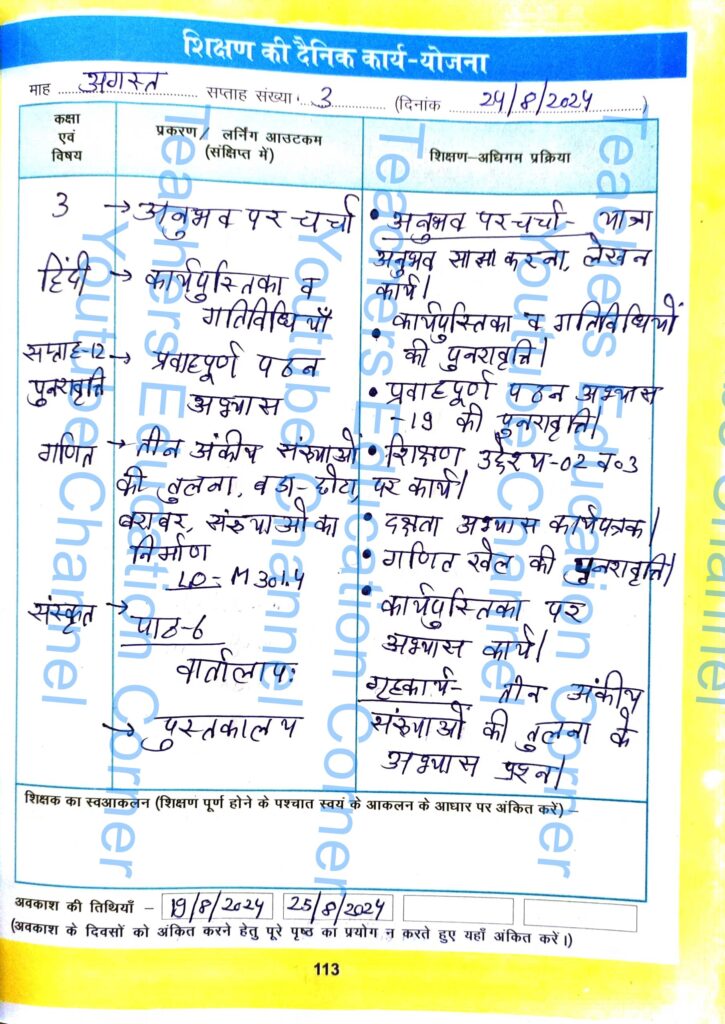 शिक्षण की दैनिक कार्य-योजना
माह अगस्त सप्ताह संख्या 3 (दिनांक 24/8/2024)
कक्षा एवं विषय
प्रकरण / लर्निंग आउटकम (संक्षिप्त में)
शिक्षण-अधिगम प्रक्रिया
3 → अनुभव पर चर्चा
हिंदी → कार्यपुस्तिका व
गतिविधियाँ
सप्ताह-12 → प्रवाहपूर्ण पठन
पुनरावृत्ति अभ्यास
गणित → तीन अंकीय संख्याओं
की तुलना, बडा-छोटा,
बराबर, संख्याओं का
निर्माण
LO- M 301.4
संस्कृत → पाठ-6
वार्तालापः
→ पुस्तकालय
• अनुभव पर चर्चा- यात्रा
अनुभव साझा करना, लेखन
कार्य।
• कार्यपुस्तिका व गतिविधियों
की पुनरावृत्ति।
• प्रवाहपूर्ण पठन अभ्यास
-19 की पुनरावृत्ति।
• शिक्षण उद्देश्य-02 व 03
पर कार्य।
• दक्षता अभ्यास कार्यपत्रक।
• गणित खेल की पुनरावृत्ति।
• कार्यपुस्तिका पर
अभ्यास कार्य।
गृहकार्य- तीन अंकीय
संख्याओं की तुलना के
अभ्यास प्रश्न।
शिक्षक का स्वआकलन (शिक्षण पूर्ण होने के पश्चात स्वयं के आकलन के आधार पर अंकित करें) –
अवकाश की तिथियाँ – 19/8/2024 25/8/2024
(अवकाश के दिवसों को अंकित करने हेतु पूरे पृष्ठ का प्रयोग न करते हुए यहाँ अंकित करें।)
113
Teachers Education Corner
Youtube Channel
Teachers Education Corner
Youtube Channel
Teachers Education Corner
Youtube Channel